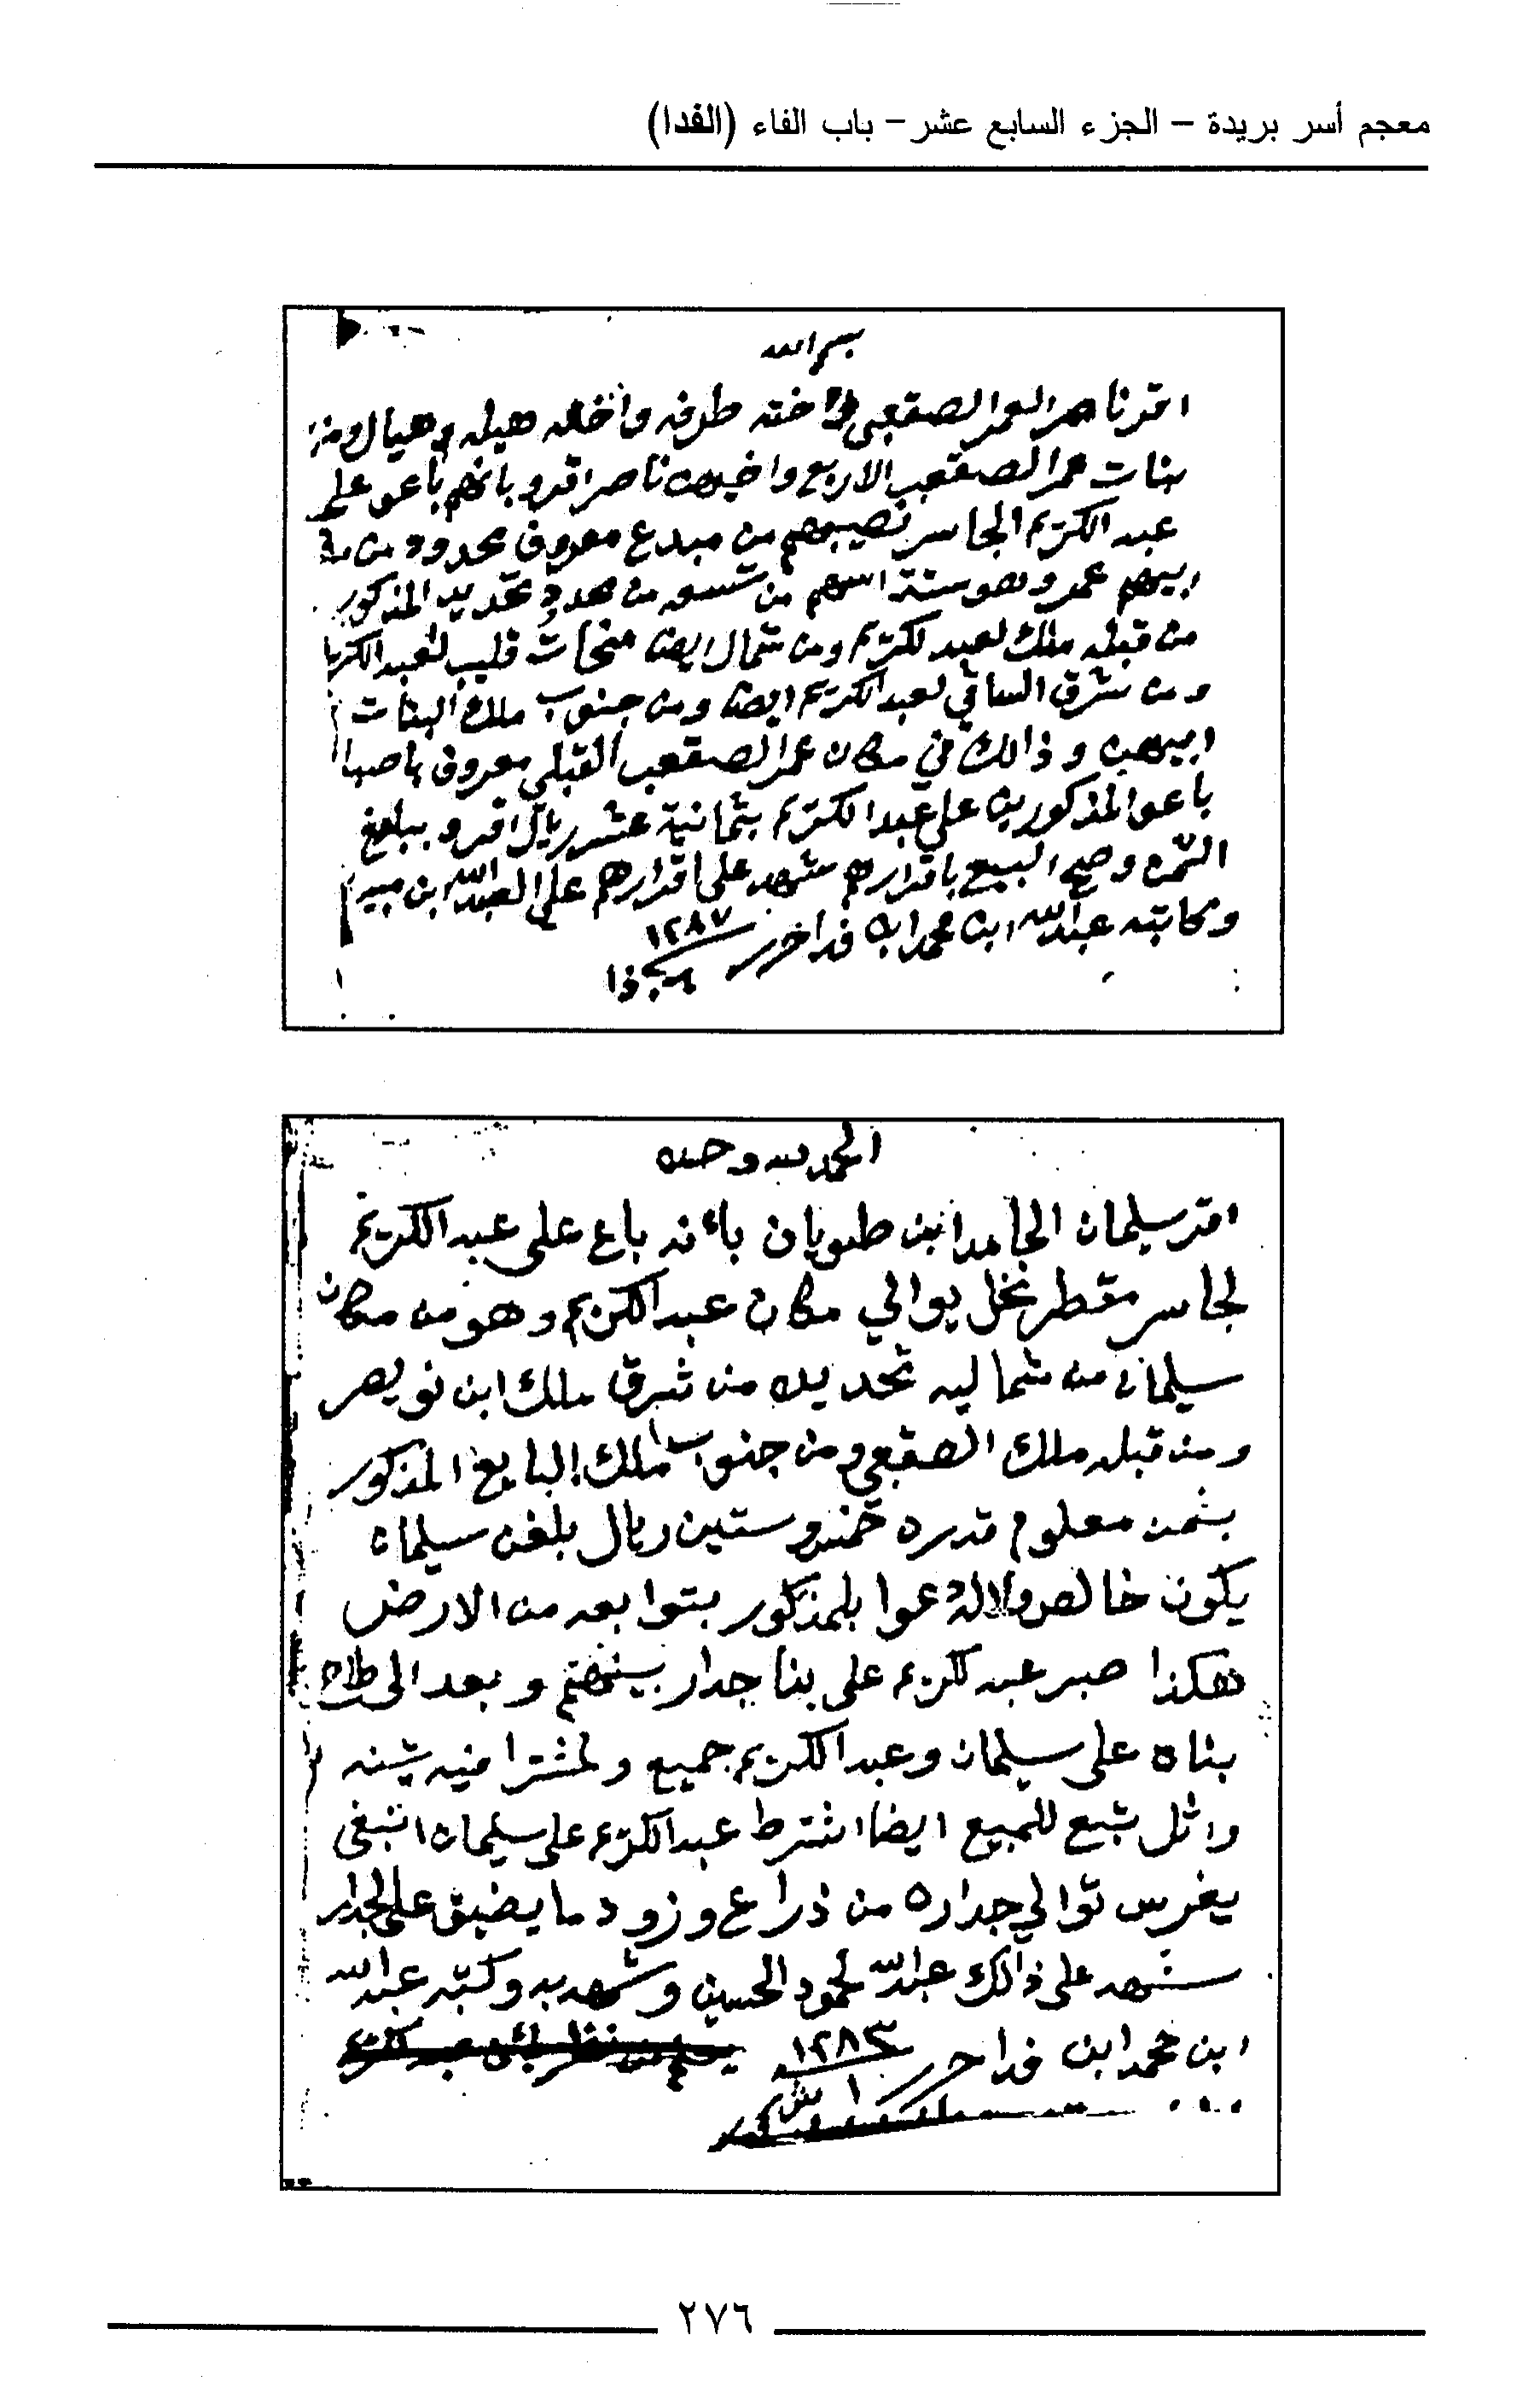 معجم أسر بريدة – الجزء السابع عشر – باب الفاء (الفدا)
بسم الله
اقر ناصر العمر الصقعبي واخته طرفه واخاته هيله وهيا ومنيره
بنات عمر الصقعبي الاربع واخيهن ناصر اقرو بانهم باعو على
عبد الكريم الجاسر نصيبهم من مبدع معروف محدود من
ابيهم عمر وهو ستة اسهم من تسعه من محدد تحديد المذكور
من قبله ملك لعبد لكريم ومن شمال ايضا منحات قليب لعبد الكريم
ومن شرق الساقي لعبد الكريم ايضا ومن جنوب ملك البنات
ابيهن وذالك في مكان عمر الصقعبي القبلي معروف
باعو المذكورين على عبد الكريم بثمانية عشر ريال اقرو ببلوغ
الثمن وصح البيع باقرارهم شهد على اقرارهم علي العبد الله ابن
وكاتبه عبد الله ابن محمد ابن فدا حرر ١٢٨٧
الحمد لله وحده
اقر سليمان الحامد ابن طويان بانه باع على عبد الكريم
لجاسر مقطر نخل يوالي مكان عبد الكريم وهو من مكان
سليمان من شماليه تحديده من شرق ملك ابن نويصر
ومن قبله ملك الصقعبي ومن جنوب ملك البايع المذكور
بثمن معلوم قدره خمس وستين ريال بلغن سليمان
يكون خالص ولاله دعوا بلمذكور بتوابعه من الارض
هكذا صبر عبد لكريم على بنا جدار بينهم وبعد
بناه على سليمان وعبد الكريم جميع ولمشترا فيه
واثل تبع للمبيع ايضا اشترط عبد الكريم على سليمان
يغرس توالي جداره من ذراع وزود ما يضيق على الجدار
شهد على ذالك عبد الله لحمود الحسين وشهد به وكتبه عبد الله
ابن محمد ابن فدا حرر ١٢٨٣
٢٧٦